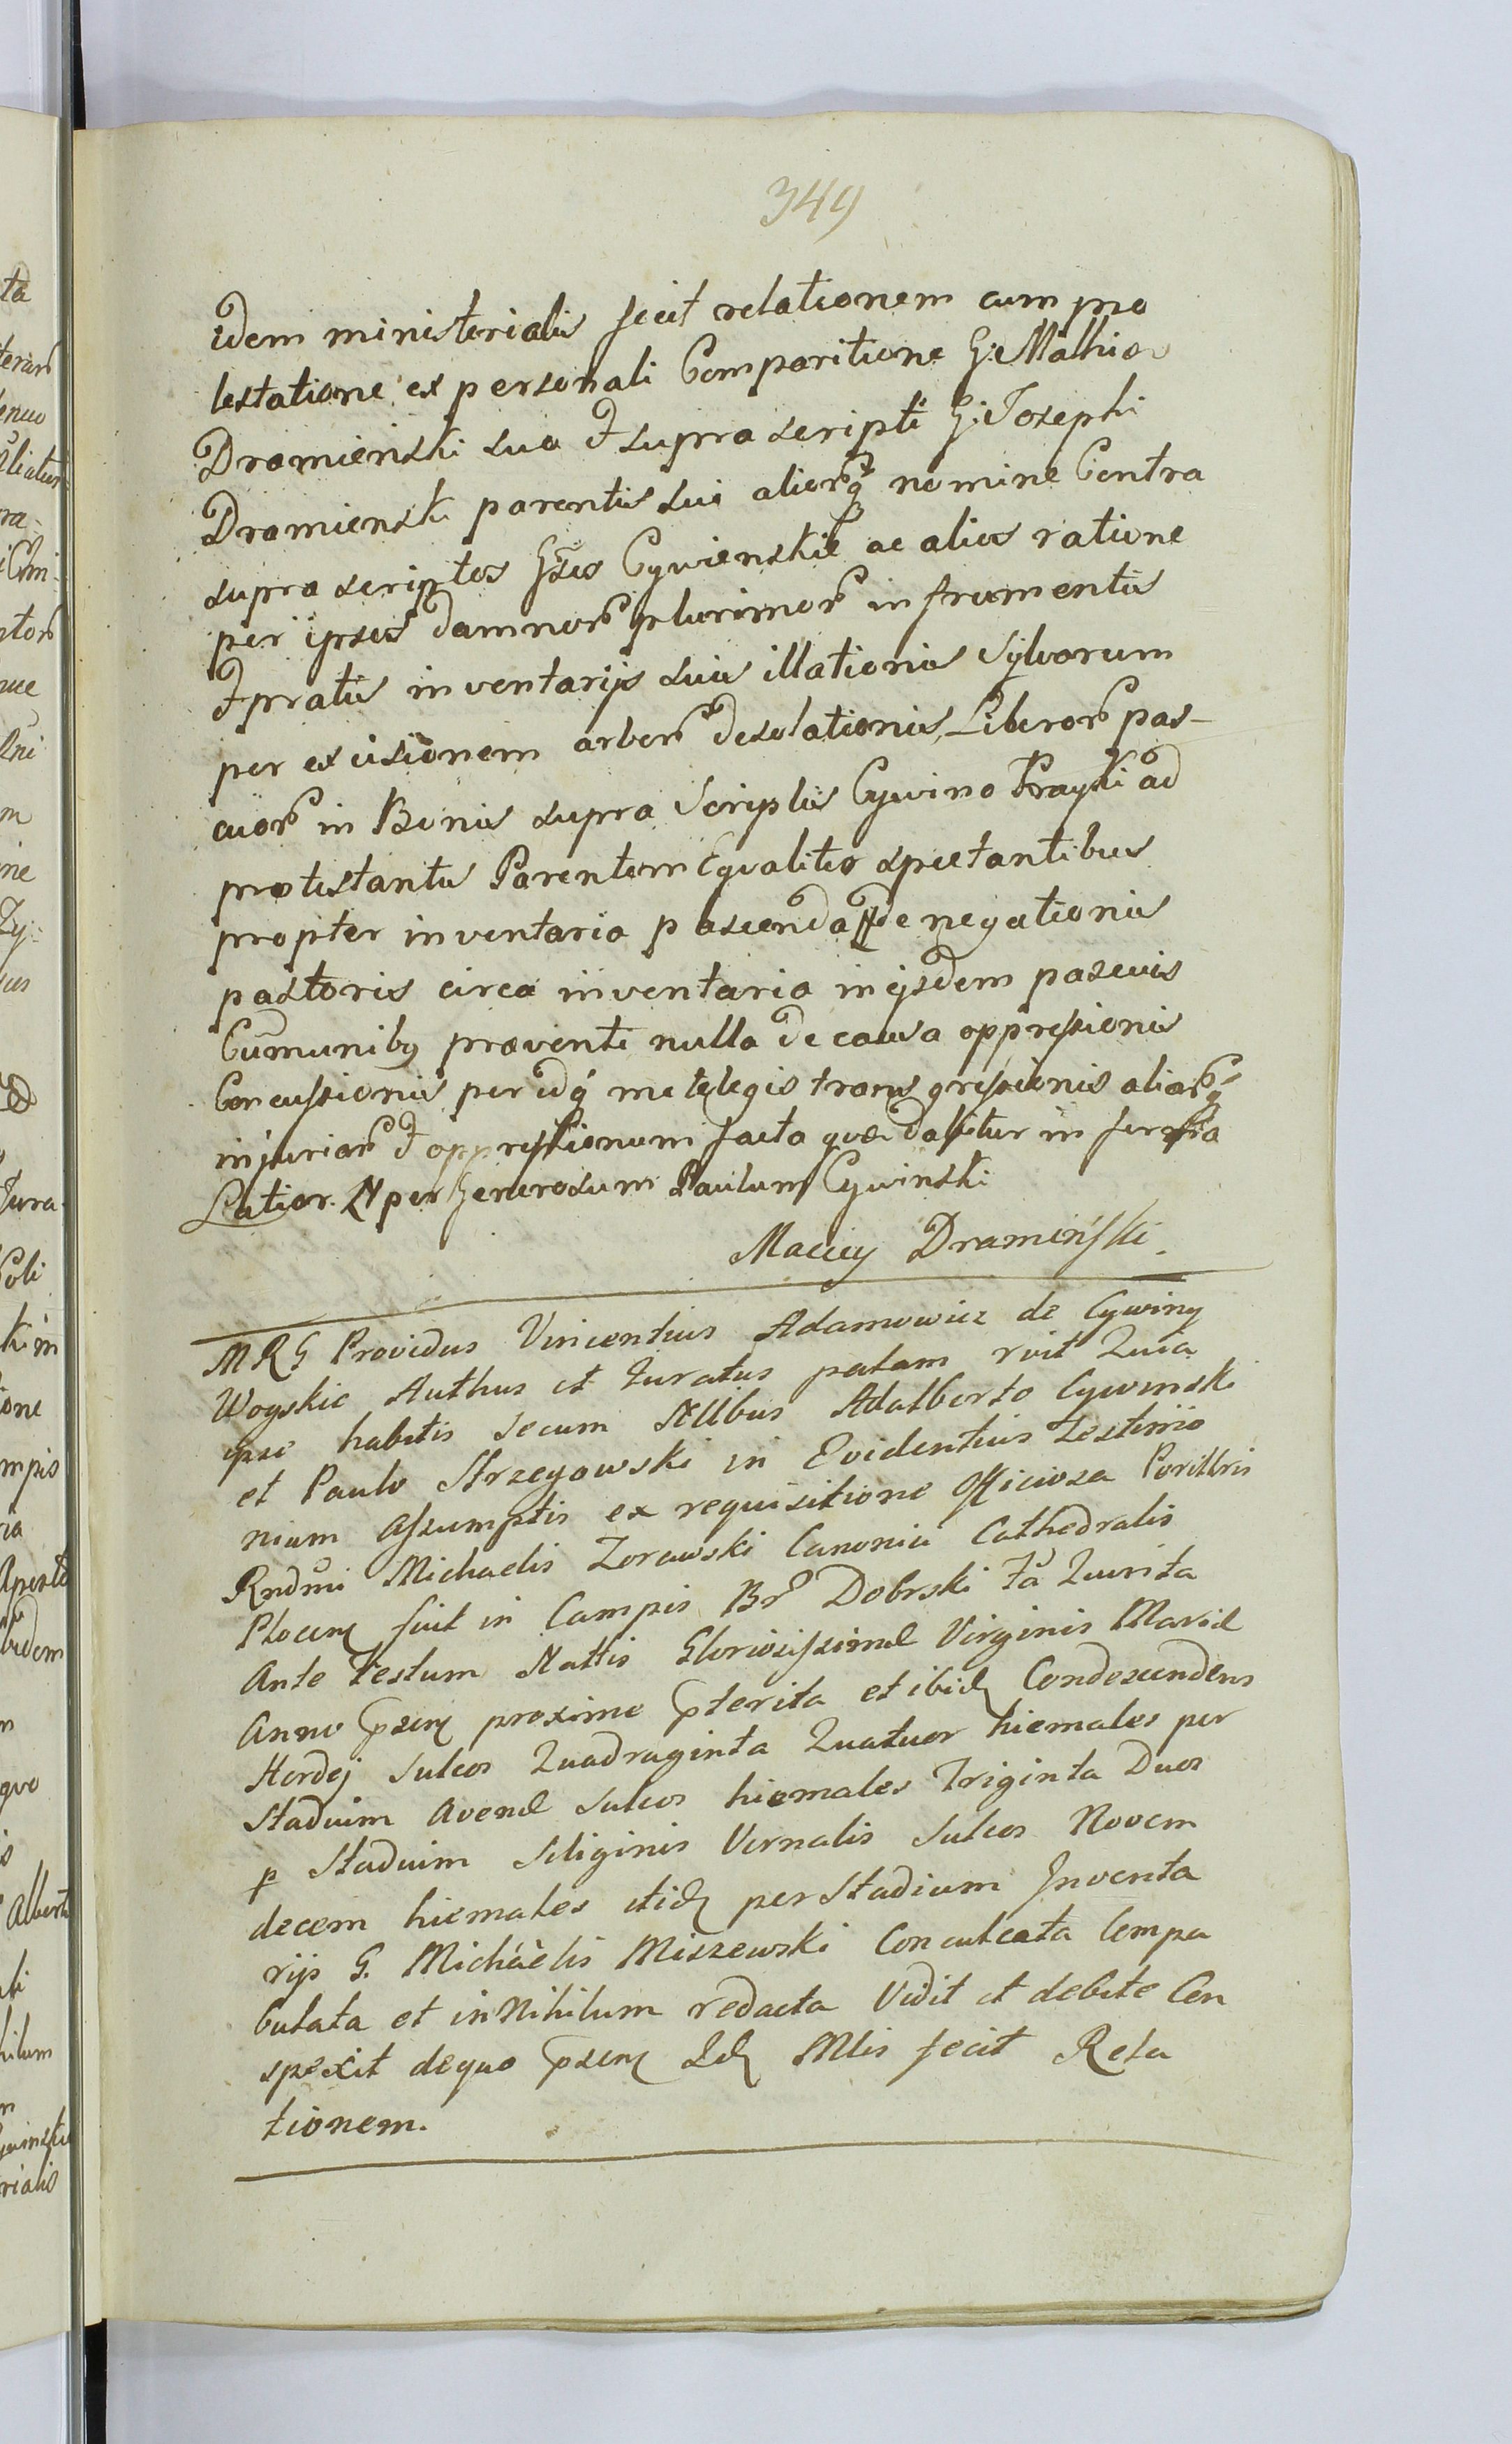 349
idem ministerialis fecit relationem cum pro
testatione ex personali Comparitione G: Mathiae
Dramienski suo & supra scripti G: Josephi
Dramienski parentis sui alior̃q3 nomine Contra
supra scriptos Gsos Cywienskie ac alios ratione
per ipsos damnor̃ plurimor̃ in frumentis
& pratis inventarijs suis illationis Sylvarum
per excisionem arbor̃ desolationis, Liberor̃ pas-
cuor̃ in Bonis supra Scriptis Cywino Krayki ad
protestantis Parentem Equaliter spectantibus
propter inventaria pascenda denegationis
pastoris circa inventaria in ejsdem pascuis
Cumunibq praeventi nulla de causa oppressionis
Concussionis per idq3 me legis transgressionis aliar̃q3
injuriar̃ & oppressionum facta quae dabitur in forma
Latior. N per Generosum Paulum Cywinski
Maciey Dramiński.
MRG Providus Vincentius Adamowicz de Cywiny
Woyskie Authus et Juratus palam rvit Quia
ipse habitis secum Nllbus Adalberto Cywinski
et Paulo Strzegowski in Evidentius Testimo
nium assumptis ex requisitione Officiosa Perillris
Rndmi Michaelis Zorawski Canonici Cathedralis
Plocen fuit in Campis Br̃ Dobrski fa Quinta
Ante Festum Nattis Gloriosissimae Virginis Mariae
Anno psen proxime pterita et ibid Condescendens
Hordej Sulcos Quadraginta Quatuor hiemales per
Stadium Avenae Sulcos hiemales Triginta Duos
p Stadium Siliginis Vernalis Sulcos Novem
decem hiemales itid per Stadium Inventa
rijs G. Michaelis Miszewski Conculcata Compa
bulata et in Nihilum redacta Vidit et debite Con
spexit de quo psen Id Mlis fecit Rela
tionem.